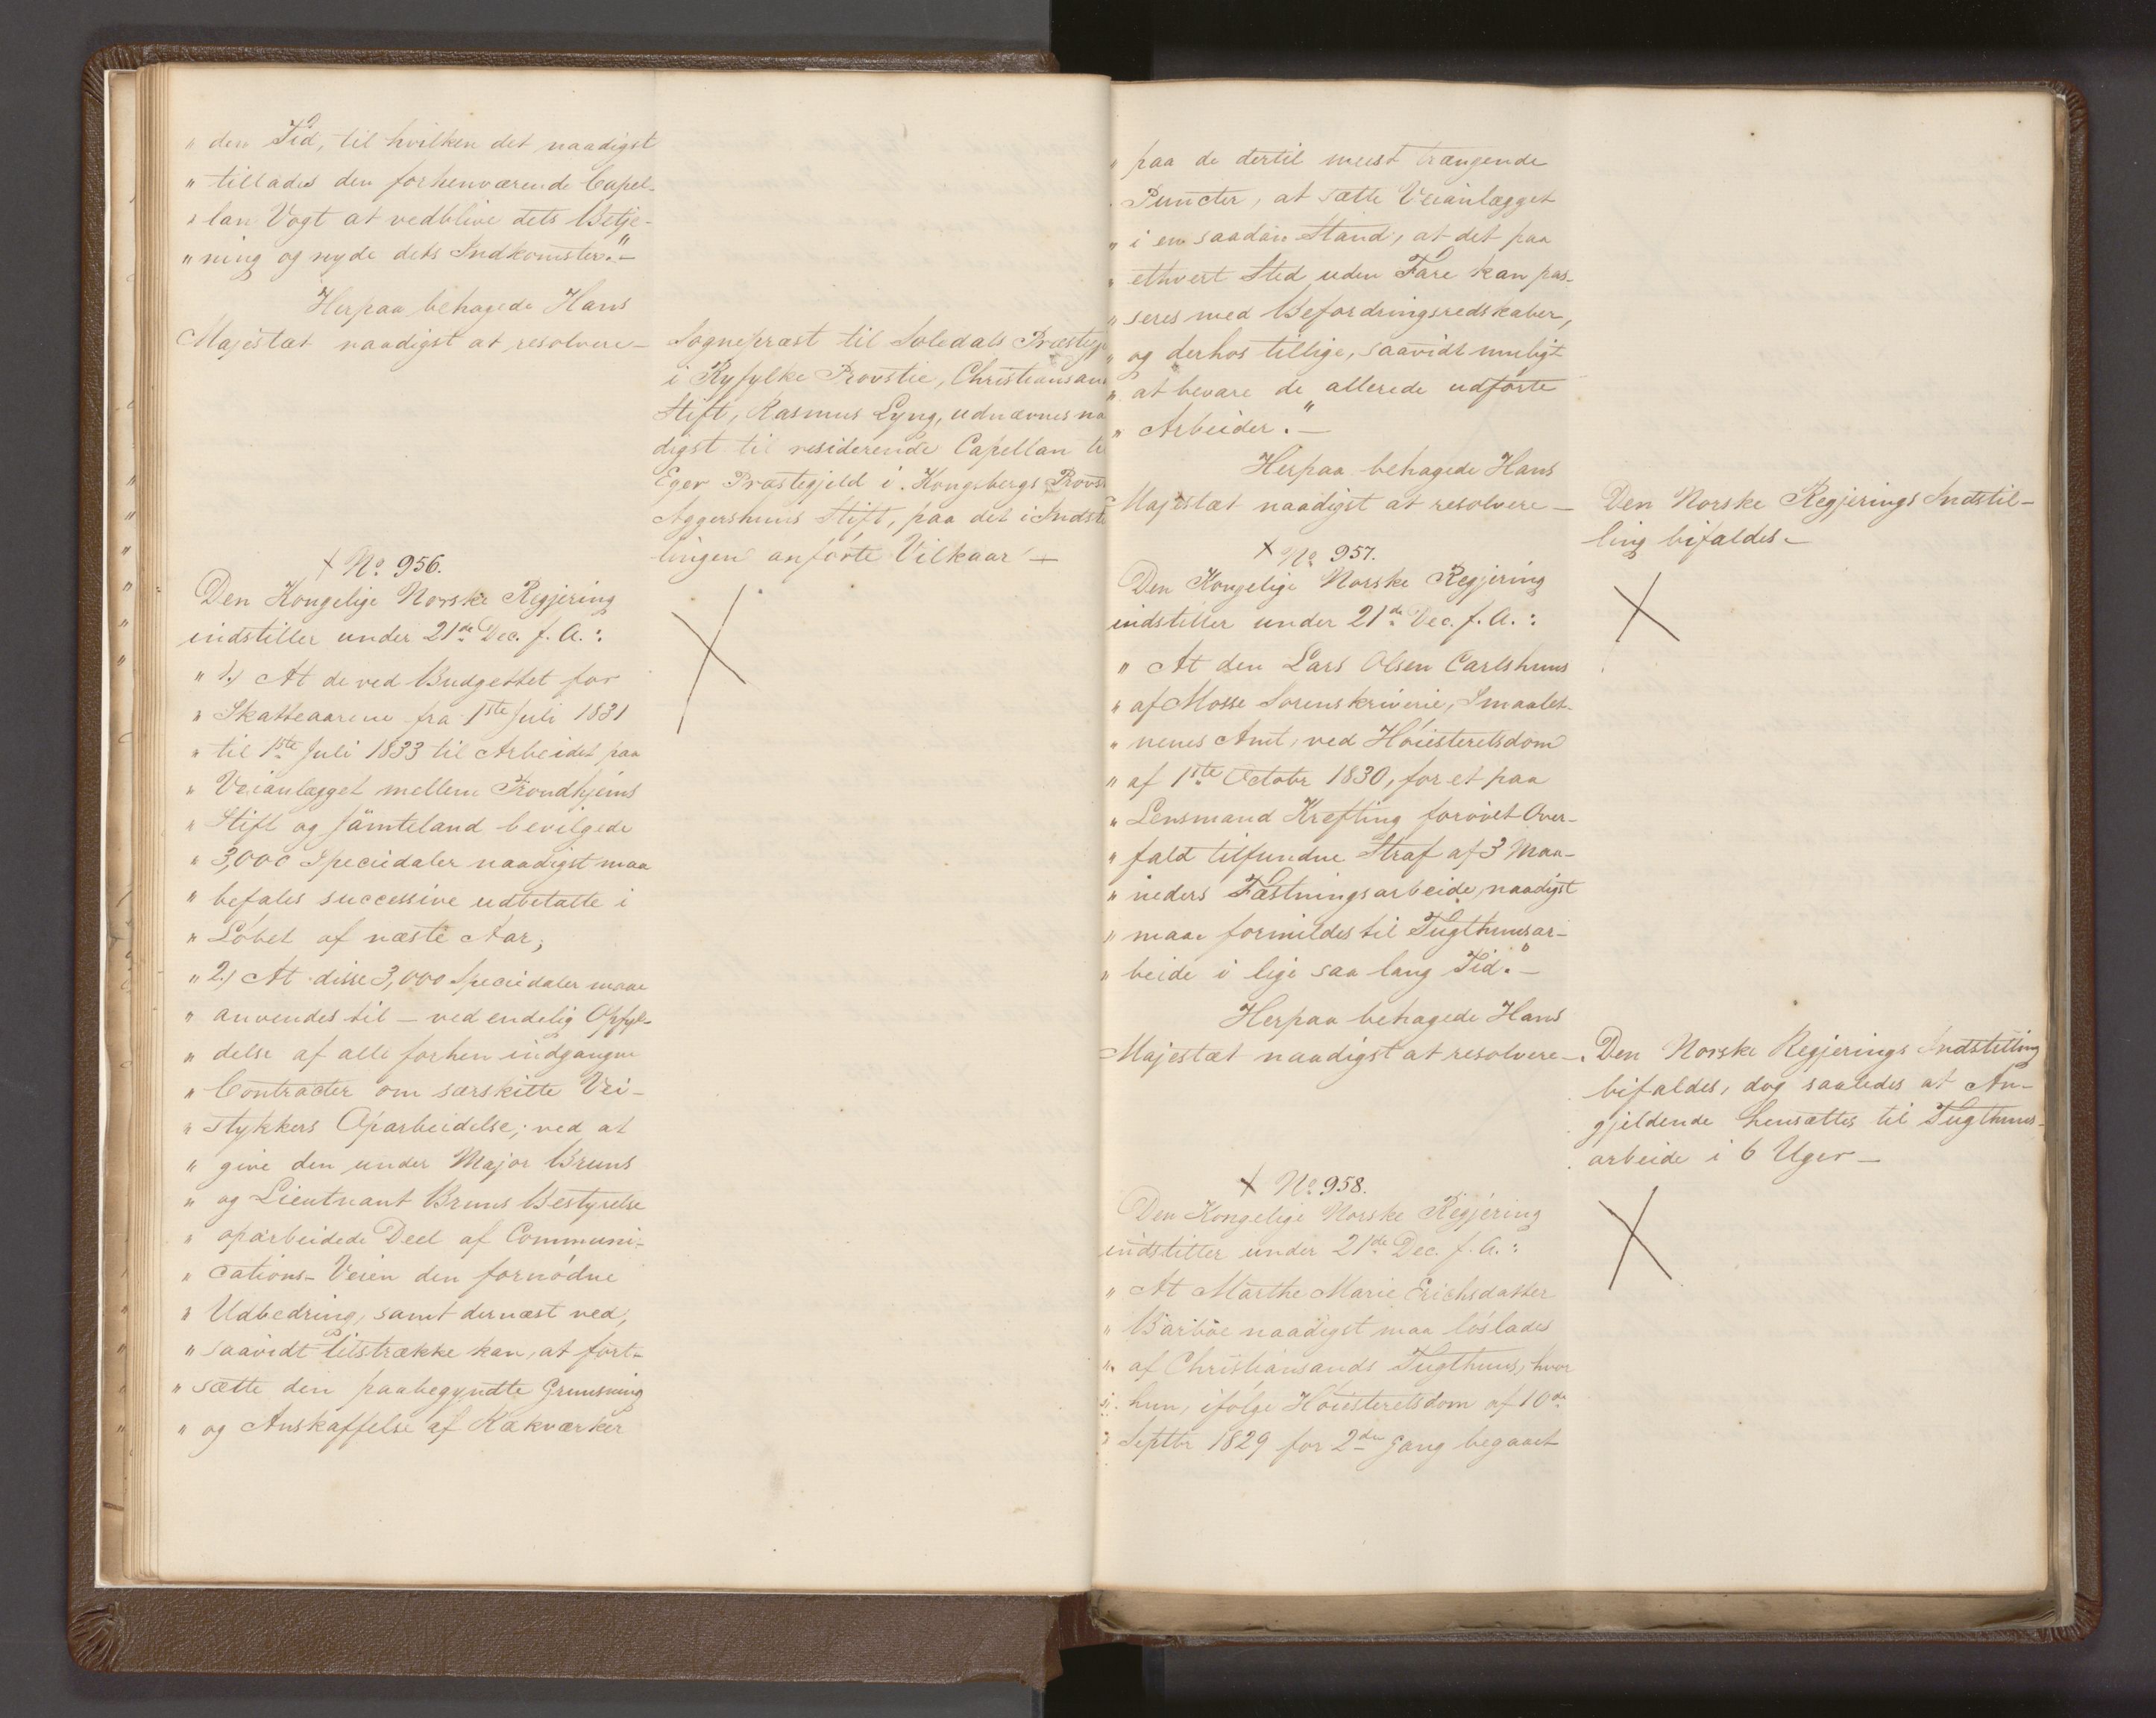 " den Tid, til hvilken det naadigst
" tillades den forhenværende Capel-
" lan Vogt at vedblive dets Betje-
" ning og nyde dets Indkomster." -
Herpaa behagede Hans
Majestæt naadigst at resolvere -
Sognepræst til Soledals Præstegj
i Ryfylke Provstie, Christiansan
Stift, Rasmus Lyng, udnævnes na
digst til residerende Capellan ti
Eger Præstegjeld i Kongsbergs Provs
Aggershuus Stift, paa det i Indsti
lingen anførte Vilkaar -
+ No. 956.
Den Kongelige Norske Regjering
indstiller under 21de Dec. f. A.:
" 1.) At de ved Budgettet for
" Skatteaarene fra 1ste Juli 1831
" til 1ste Juli 1833 til Arbeidet paa
" Veianlægget mellem Trondhjems
" Stift og Jämteland bevilgede
" 3,000 Speciedaler naadigst maa
" befales successive udbetalte i
" Løbet af næste Aar;
" 2.) At disse 3,000 Speciedaler maae
" anvendes til - ved endelig Opfyl-
" delse af alle forhen indgangne
" Contracter om særskilte Vei-
" stykkers Oparbeidelse; ved at
" give den under Major Bruns
" og Lieutnant Bruns Bestyrelse
" oparbeidede Deel af Communi-
" cations-Veien den fornødne
" Udbedring, samt dernæst ved,
" saavidt tilstrække kan, at fort-
" sætte den paabegyndte Gruusning
" og Anskaffelse af Rækværker
" paa de dertil meest trængende
" Puncter, at sætte Veianlægget
" i en saadan Stand, at det paa
" ethvert Sted uden Fare kan pas-
" seres med Befordringsredskaber,
" og derhos tillige, saavidt muligt
" at bevare de allerede udførte
" Arbeider." -
Herpaa behagede Hans
Majestæt naadigst at resolvere -
Den Norske Regjerings Indstil-
ling bifaldes -
+ No. 957.
Den Kongelige Norske Regjering
indstiller under 21de Dec. f. A.:
" At den Lars Olsen Carlshuus
" af Mosse Sorenskriverie, Smaaleh-
" nenes Amt, ved Høiesteretsdom
" af 1ste Octobr 1830, for et paa
" Lensmand Krefting forøvet Over-
" fald tilfundne Straf af 3 Maa-
" neders Fæstningsarbeide, naadigst
" maae formildes til Tugthuusar-
" beide i lige saa lang Tid." -
Herpaa behagede Hans
Majestæt naadigst at resolvere -
Den Norske Regjerings Indstilling
bifaldes, dog saaledes at An-
gjeldende hensættes til Tugthuus-
arbeide i 6 Uger -
+ No. 958.
Den Kongelige Norske Regjering
indstiller under 21de Dec. f. A.:
" At Marthe Marie Erichsdatter
" Barbøe naadigst maa løslades
" af Christiansands Tugthuus, hvor
" hun, ifølge Høiesteretsdom af 10de
" Septbr 1829 for 2den Gang begaaet